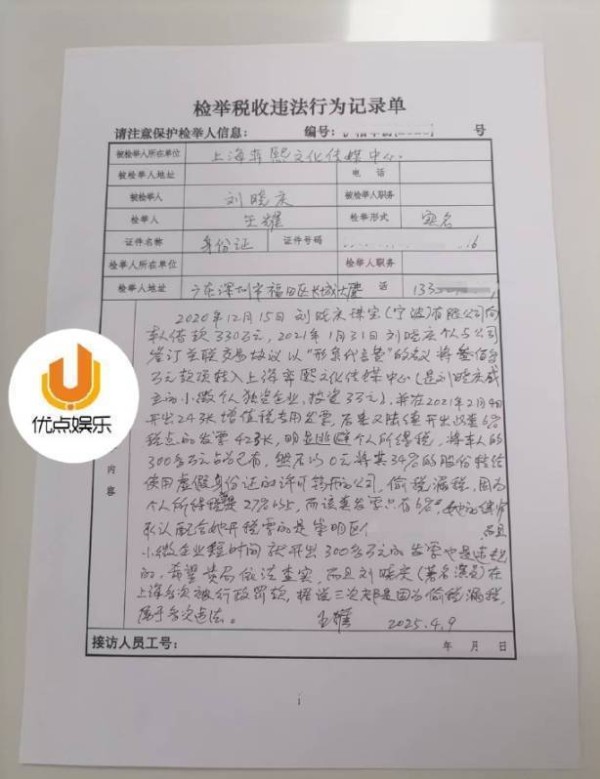 检举税收违法行为记录单
请注意保护检举人信息： 编号： 号
被检举人所在单位 上海 熙文化传媒中心
被检举人地址 电话
被检举人 刘晓庆 被检举人职务
检举人 王耀 检举形式 实名
证件名称 身份证 证件号码 16
检举人所在单位 检举人职务
检举人地址 广东深圳市福田区长城大厦 话 133
2020年12月15日刘晓庆珠宝(宁波)有限公司向
本人借款330万元，2021年1月31日刘晓庆个人与公司
签订关联交易协议以"形象代言费"的名义将叁佰多
万元款项转入上海 熙文化传媒中心(是刘晓庆成
立的小微个人独资企业，投资3万元)，并在2021年2月4日
开出24张增值税专用发票，后来又陆续开出以委6%
税点的发票42张，明显逃避个人所得税，将本人的
300多万元占为己有，然后以0元将其34%的股份转给
使用虚假身份证的许可 的公司，偷税漏税，因为
个人所得税 27%-35，而该 发票只有6%。她的
承认配合她开税票的是崇明区 而且
小微企业短时间 开出300多万元的发票也是违规
的，希望贵局依法查实，而且刘晓庆(著名演员)在
上海多次被行政罚款，据说三次都是因为偷税漏税，
属于多次违法。 王耀 2025.4.9
内容
接访人员工号： 年 月 日
优点娱乐